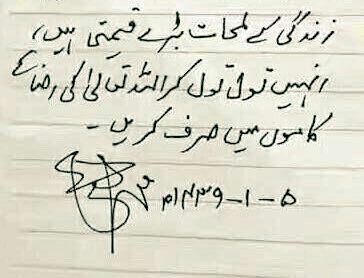 زندگی کے لمحات بڑے قیمتی ہیں،
انہیں تول تول کر اللہ تعالیٰ کی رضا کے
کاموں میں صرف کریں۔
۵-۱-۱۴۳۹ھ